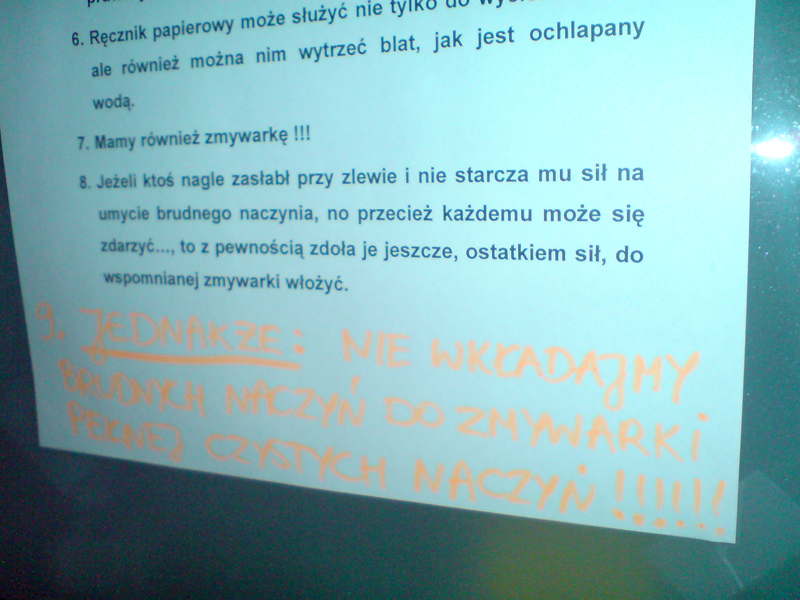 6. Ręcznik papierowy może służyć nie tylko do
ale również można nim wytrzeć blat, jak jest ochlapany
wodą.
7. Mamy również zmywarkę !!!
8. Jeżeli ktoś nagle zasłabł przy zlewie i nie starcza mu sił na
umycie brudnego naczynia, no przecież każdemu może się
zdarzyć..., to z pewnością zdoła je jeszcze, ostatkiem sił, do
wspomnianej zmywarki włożyć.
9. JEDNAKŻE: NIE WKŁADAJMY
BRUDNYCH NACZYŃ DO ZMYWARKI
PEŁNEJ CZYSTYCH NACZYŃ !!!!!!